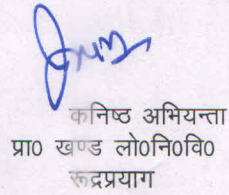 कनिष्ठ अभियन्ता
प्रा0 खण्ड लो0नि0वि0
रूद्रप्रयाग